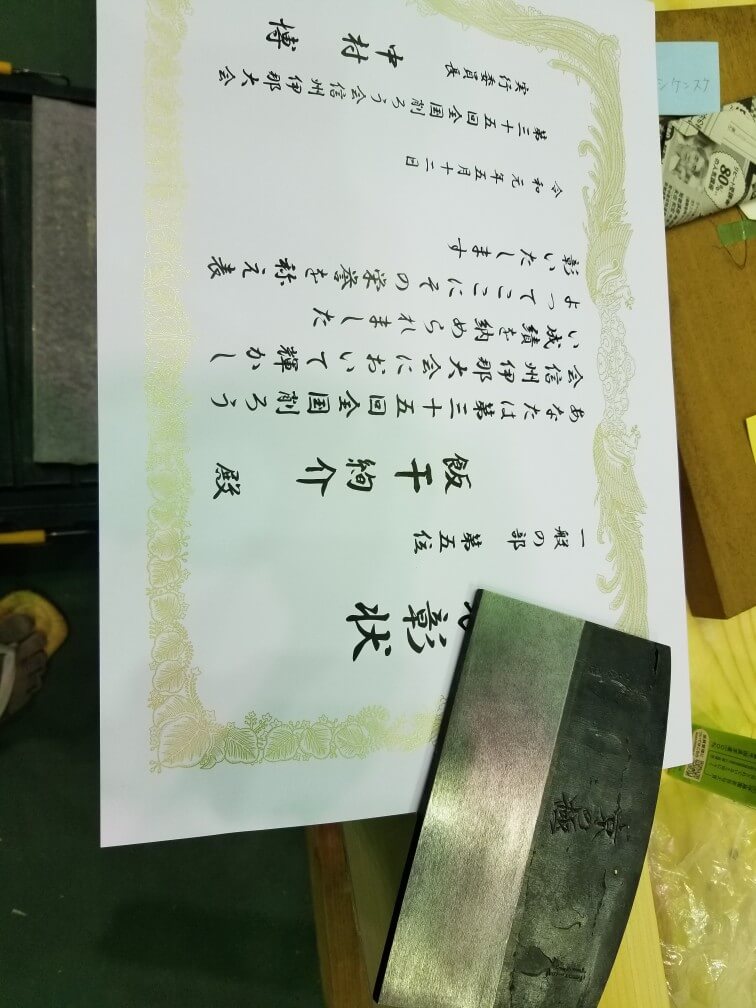 彰状
一般の部 第五位
飯干絢介 殿
あなたは第三十五回全国削ろう
会信州伊那大会において輝かし
い成績を納められました
よってここにその栄誉を称え表
彰いたします
令和元年五月十二日
第三十五回全国削ろう会信州伊那大会
実行委員長
中村 博
京の極
シケンスケ
80%